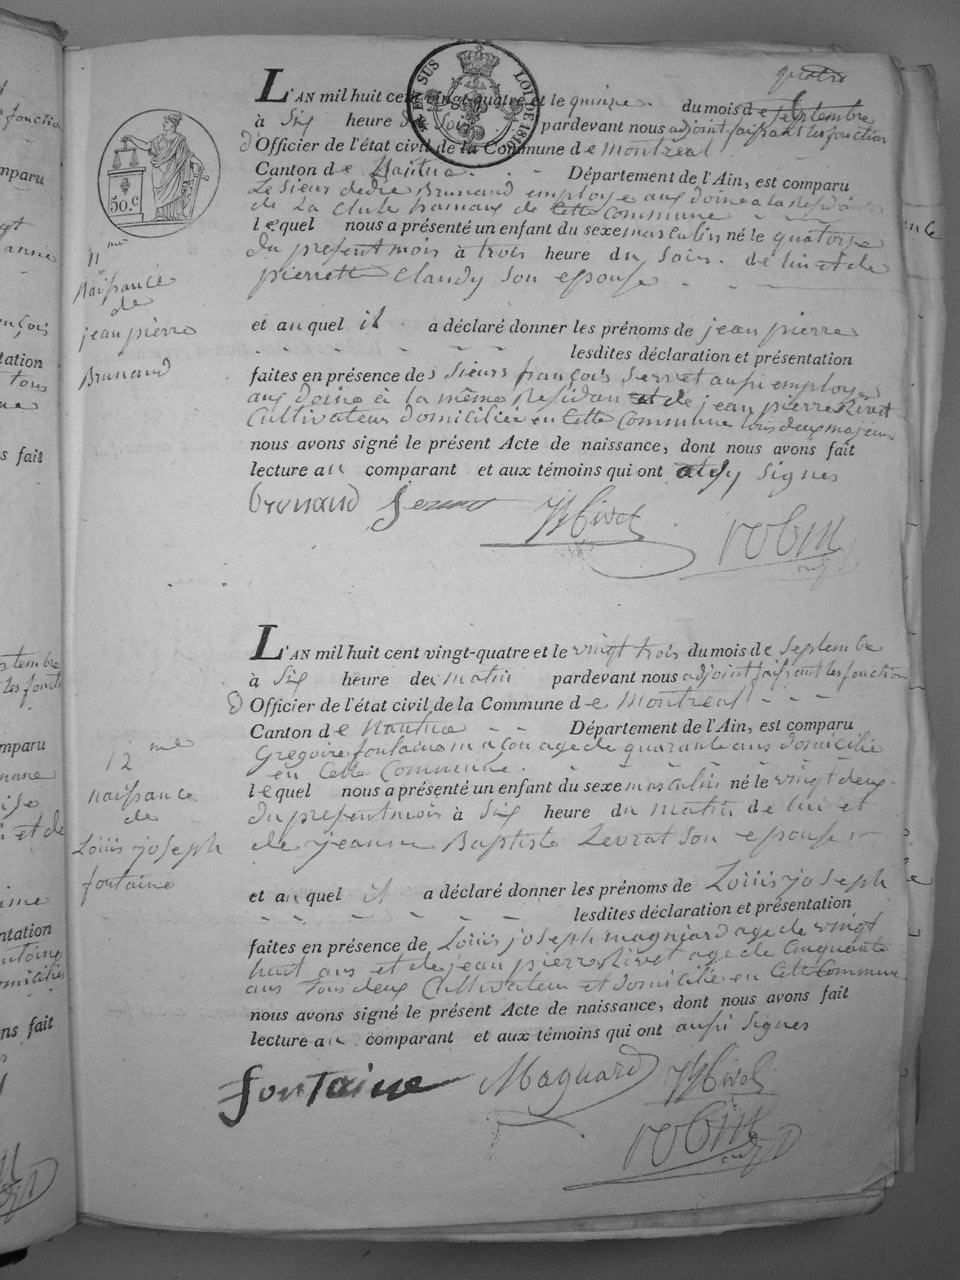 quatre
L'AN mil huit cent vingt-quatre et le quinze du mois de septembre
à Six heure du Soir pardevant nous adjoint faisant les fonction
d'Officier de l'état civil de la Commune de Montreal
Canton de Nantua Département de l'Ain, est comparu
Le Sieur Brunand employe aux
de La de Cette Commune
lequel nous a présenté un enfant du sexe masculin né le quatorze
du present mois à trois heure du Soir de lui et de
pierrette Claudy Son epouse
et auquel il a déclaré donner les prénoms de jean pierre
lesdites déclaration et présentation
faites en présence des Sieurs françois Serret aussi employe
aux à la même et de jean pierre Rivet
Cultivateur domicilié en Cette Commune tous deux majeurs
nous avons signé le présent Acte de naissance, dont nous avons fait
lecture au comparant et aux témoins qui ont signes
brunand Rivet
robin
adj
11me
Naissance
de
jean pierre
Brunand
50.c
EN SUS LOI DE 1816
L'AN mil huit cent vingt-quatre et le vingt trois du mois de Septembre
à Six heure de matin pardevant nous adjoint faisant les fonction
d Officier de l'état civil de la Commune de Montreal
Canton de Nantua Département de l'Ain, est comparu
Gregoire fontaine maçon age de quarante ans domicilié
en Cette Commune
lequel nous a présenté un enfant du sexe masculin né le vingt deux
du present mois à Six heure du matin de lui et
de jeanne Baptiste Levrat Son epouse
et auquel il a déclaré donner les prénoms de Loüis joseph
lesdites déclaration et présentation
faites en présence de Loüis joseph magniard age de vingt
huit ans et de jean pierre Rivet age de Cinquante
ans tous deux Cultivateur et domicilié en Cette Commune
nous avons signé le présent Acte de naissance, dont nous avons fait
lecture au comparant et aux témoins qui ont aussi signes
fontaine Magnard Rivet
robin
adj
12me
naissance
de
Loüis joseph
fontaine